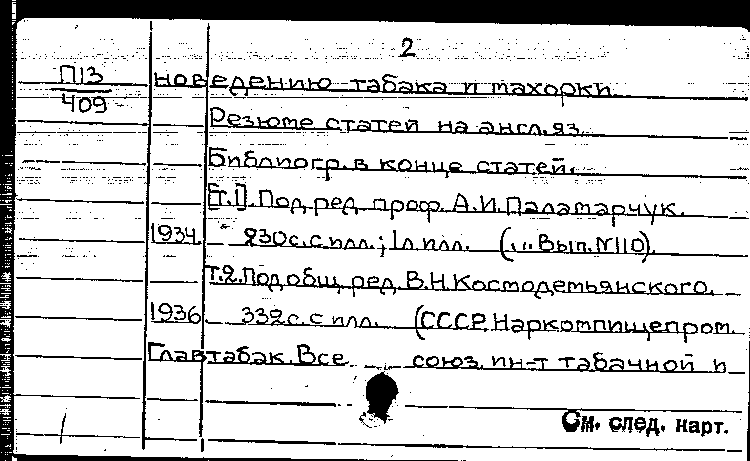 2
П13
409
новедению табака и махорки
Резюме статей на англ. яз.
Библиогр. в конце статей.
[т.1]. Под ред. проф. А.И. Паламарчук.
1934. 230 с. с илл.; 1 л. илл. (... Вып. №110).
Т.2. Под общ. ред. В.Н. Космодемьянского.
1936. 332 с. с илл. (СССР. Наркомпищепром.
Главтабак. Все союз. ин-т табачной и
См. след. карт.